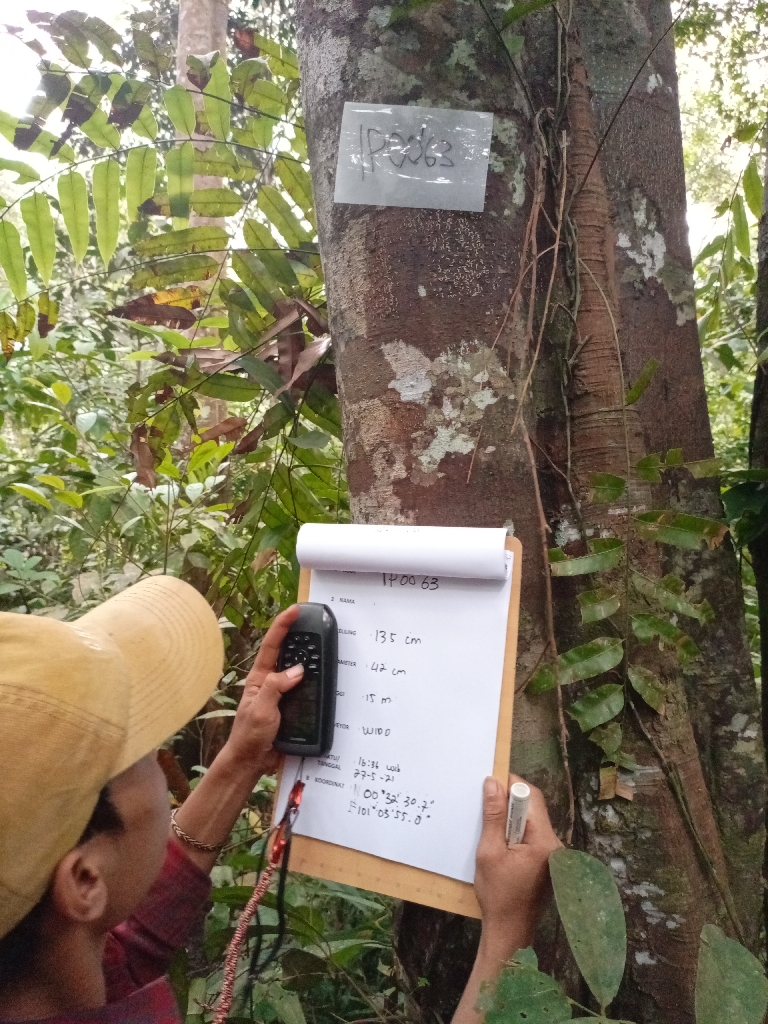 IP0063
IP00 63
2 NAMA
LILING · 135 cm
AMETER · 42 cm
GI · 15 m
VEYOR · WIDO
KTU/ TANGGAL · 16:36 wib
27-5-21
8 KOORDINAT N 00°32'30.7"
E 101°03'55.0"